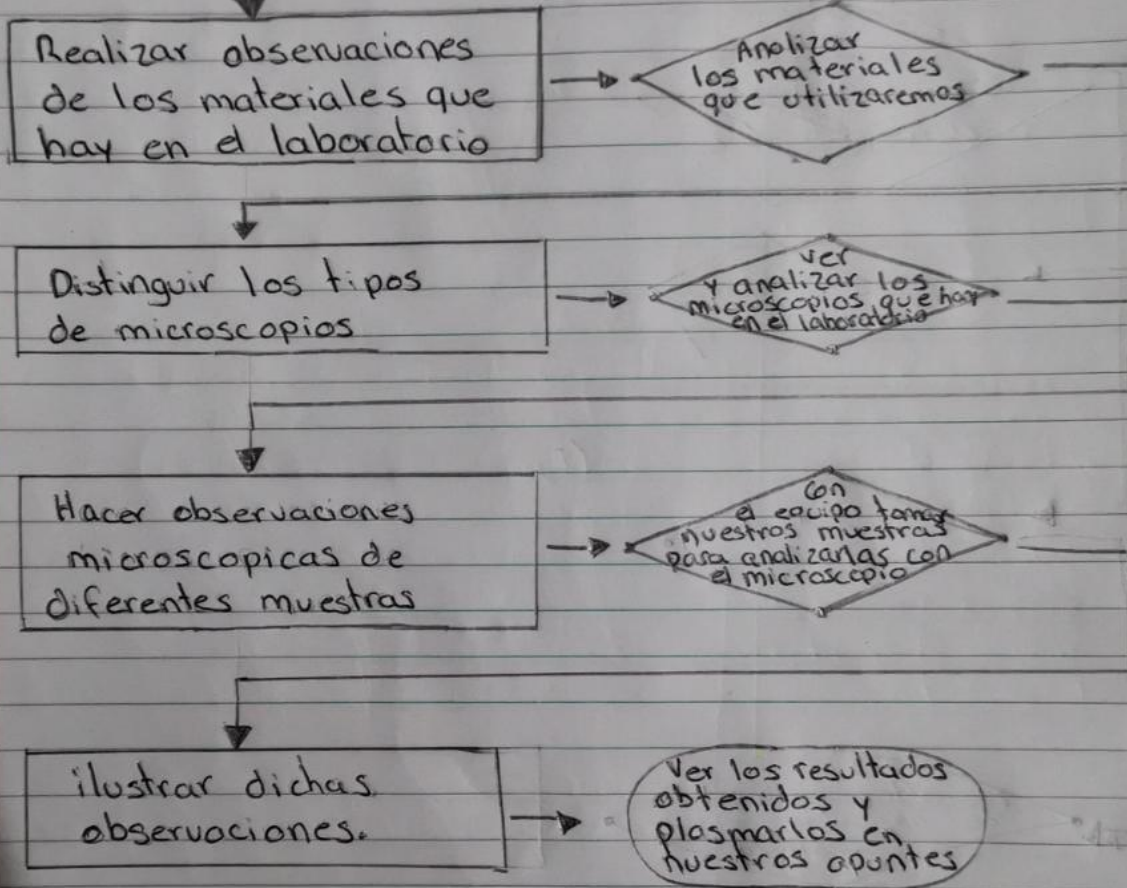 Realizar observaciones
de los materiales que
hay en el laboratorio
Analizar
los materiales
que utilizaremos
Distinguir los tipos
de microscopios
ver
y analizar los
microscopios que hay
en el laboratorio
Hacer observaciones
microscopicas de
diferentes muestras
Con
el equipo tomar
nuestros muestras
para analizarlas con
el microscopio
ilustrar dichas
observaciones.
Ver los resultados
obtenidos y
plasmarlos en
nuestros apuntes